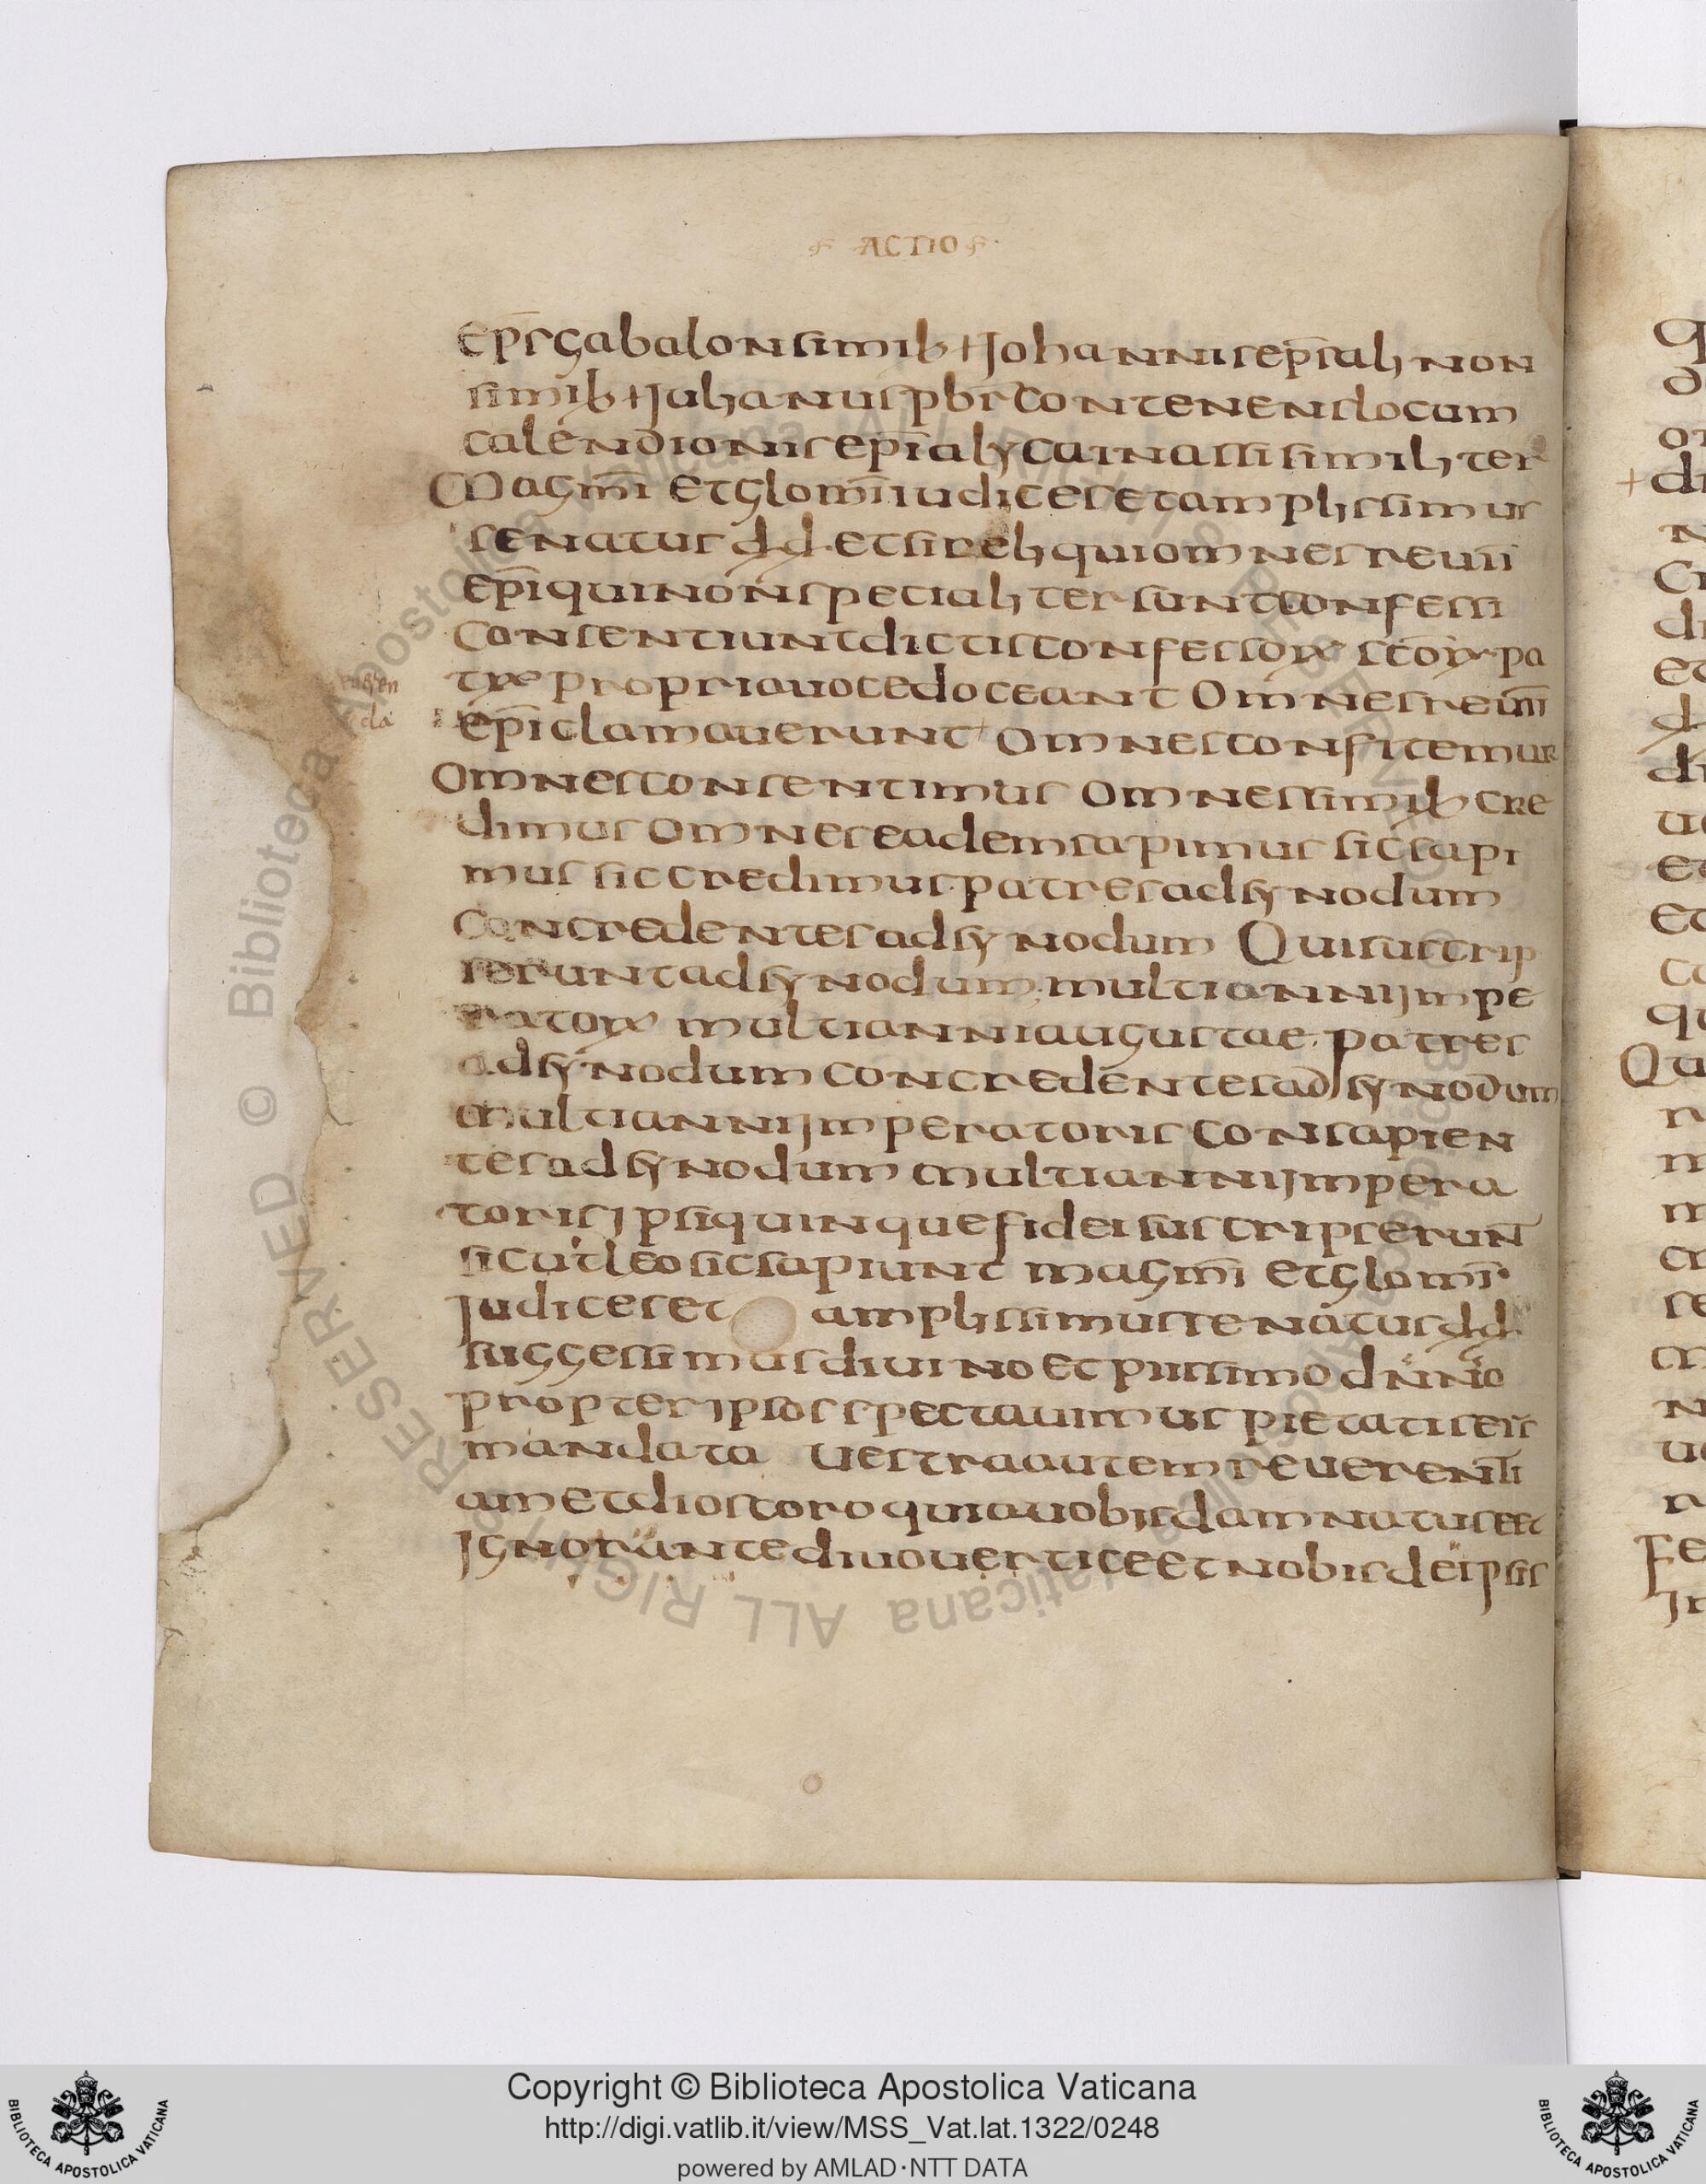 ACTIO
ep̅s gabalon simil + Johannis ep̅s ali non
simil + Julianus pbr̅ contenens locum
calendionis ep̅i alycarnassi similiter
Magm̅i et glom̅i iudices et amplissimus
senatus dd et si reliqui omnes reuii̅
ep̅i qui non specialiter sunt confessi
consentiunt dictis confessoꝝ sc̅oꝝ pa
tꝝ propria uoce doceant Omnes reuii̅
ep̅i clamauerunt omnes confitemur
Omnes consentimus Omnes simil cre
dimus omnes eadem sapimus sic sapi
mus sic credimus patres ad synodum
concredentes ad synodum Qui suscrip
serunt ad synodum multi anni Jmpe
ratoꝝ multi anni augustae patres
ad synodum concredentes ad synodum
multi anni Jmperatoris consapien
tes ad synodum multi anni Jmpera
toris Jpsi quinque fidei suscripserun̅
sicut leo sic sapiunt magm̅i et glom̅i
Judices et amplissimus senatus dd
suggessimus diuino et piissimo dn̅no
propter ipsos spectauimus pietatis eis̅
mandata uestra autem reuerenti
am et dioscoro qui a uobis damnatus est
Jgnorante diuo uertice et nobis de ipsis
Copyright © Biblioteca Apostolica Vaticana
http://digi.vatlib.it/view/MSS_Vat.lat.1322/0248
powered by AMLAD·NTT DATA